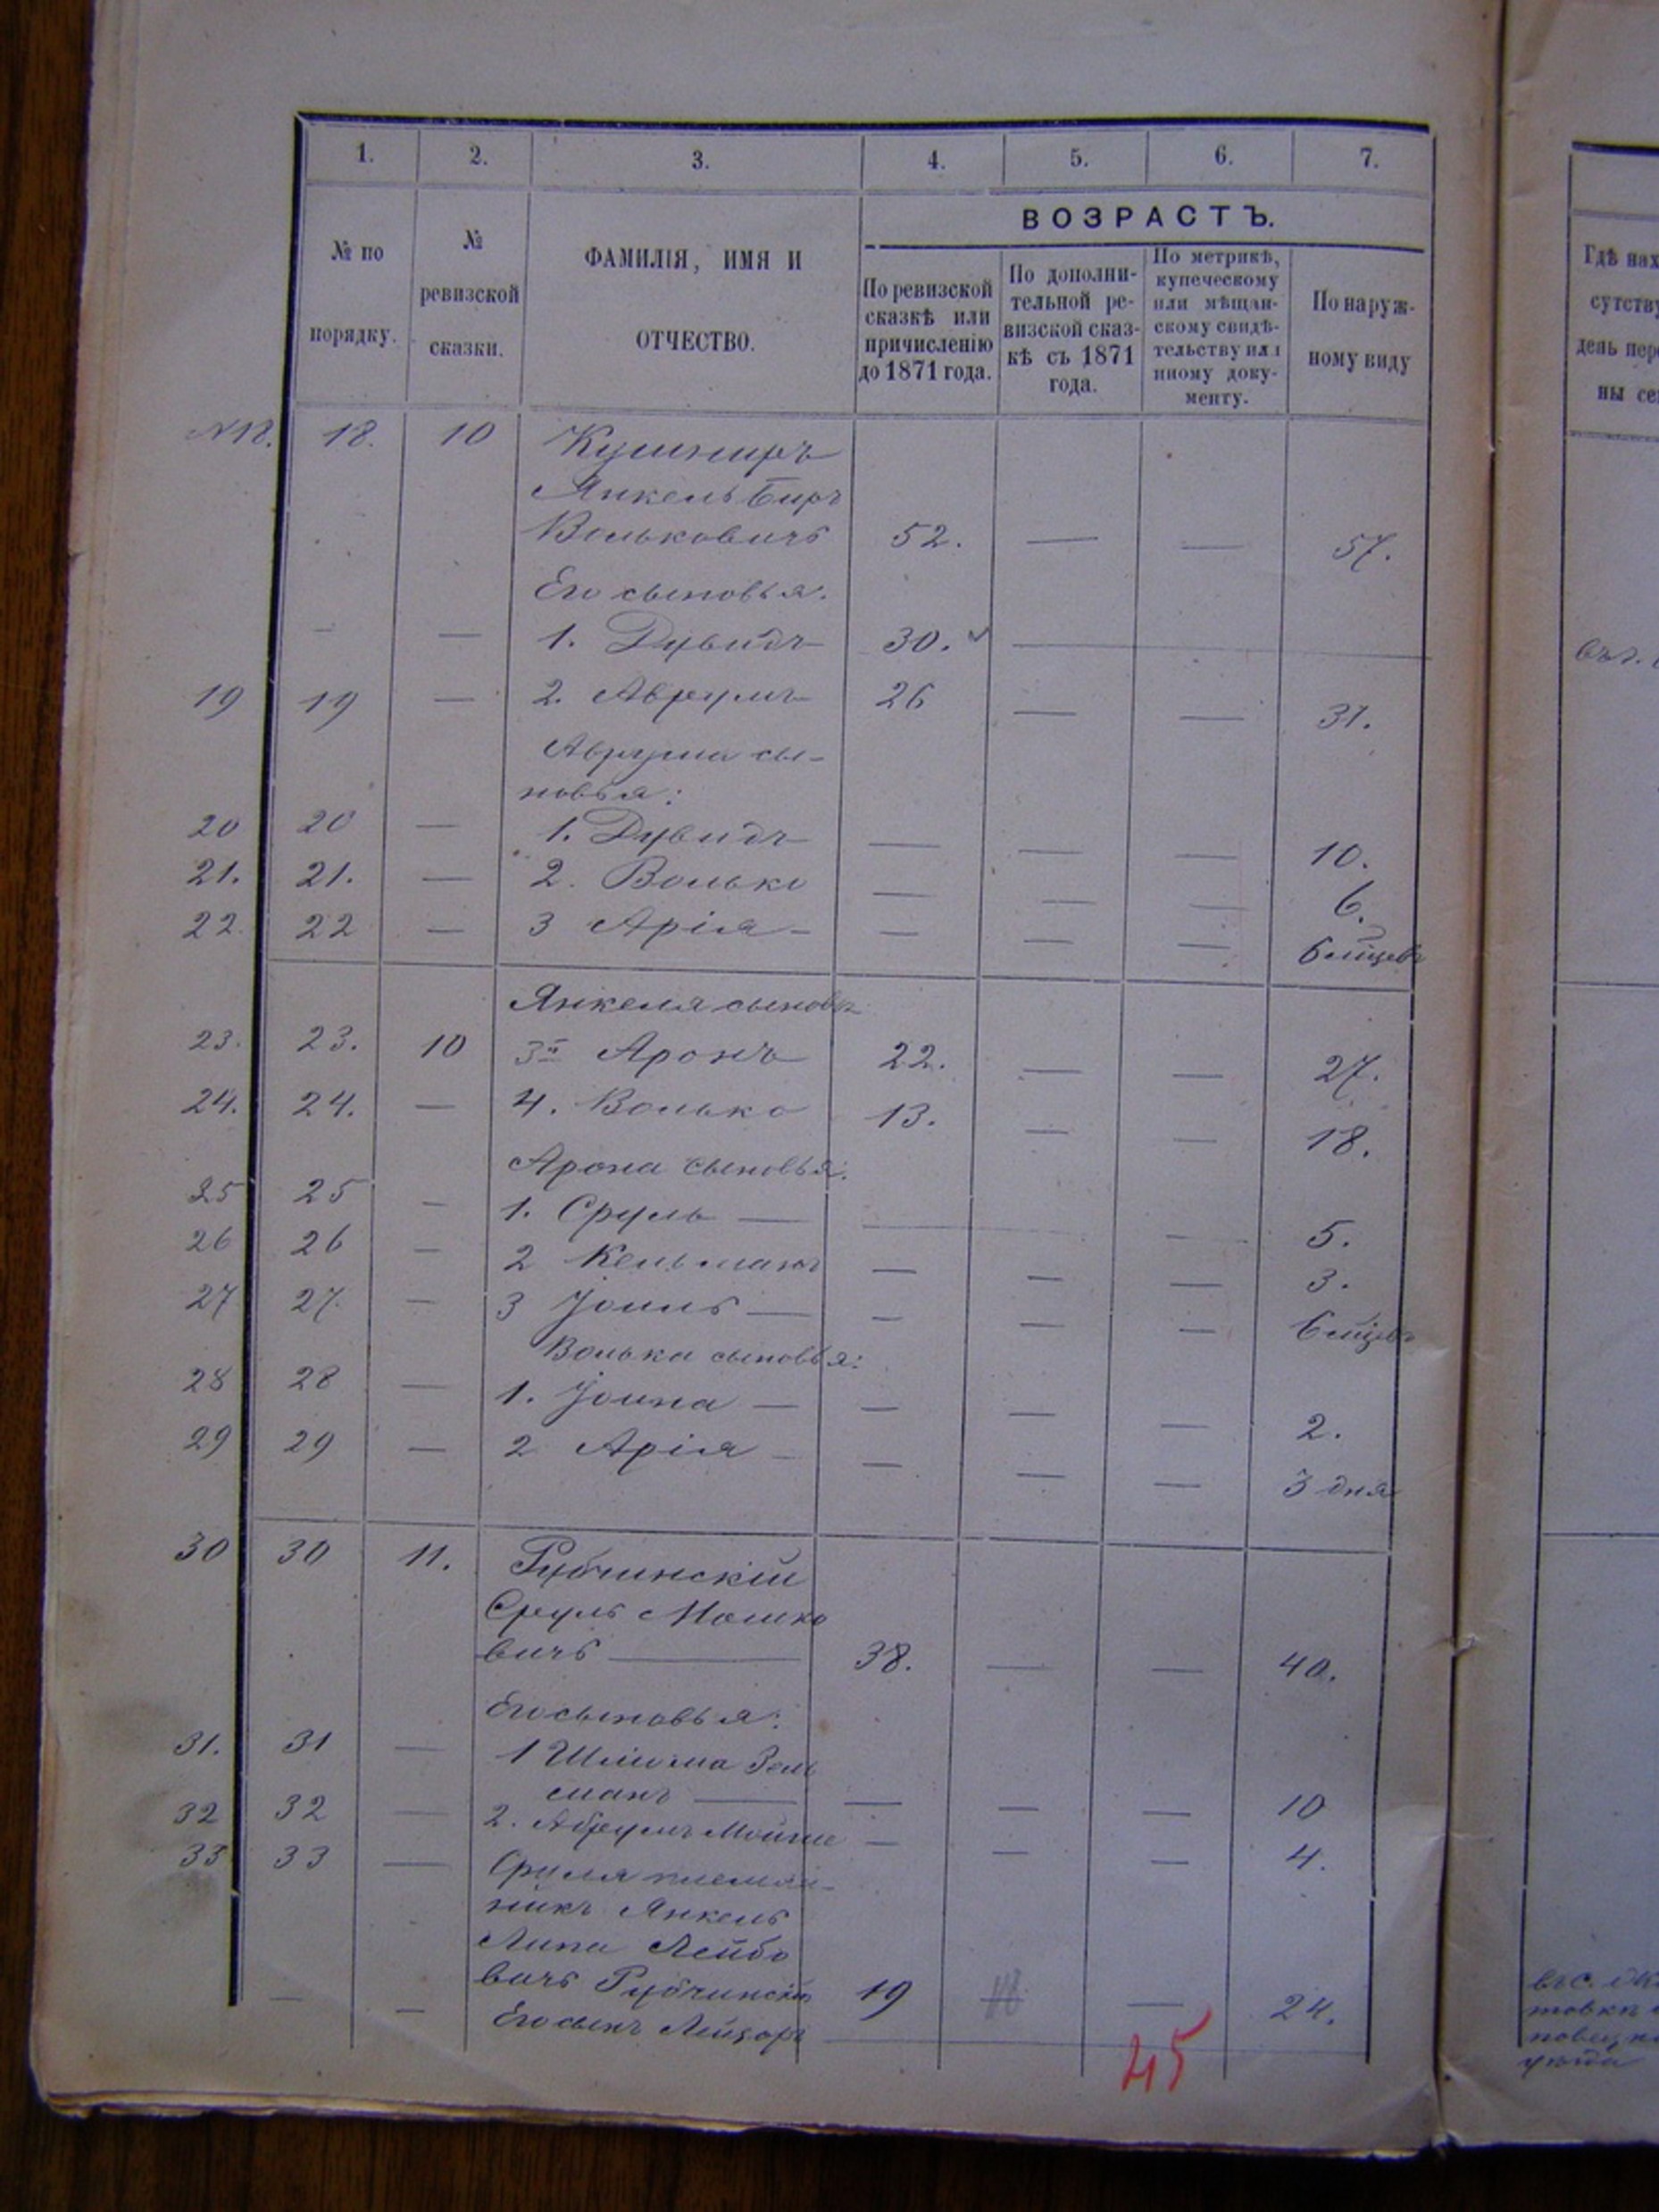 1. 2. 3. 4. 5. 6. 7.
ВОЗРАСТЪ.
№ по порядку.
№ ревизской сказки.
ФАМИЛІЯ, ИМЯ И ОТЧЕСТВО.
По ревизской сказкѣ или причисленію до 1871 года.
По дополнительной ревизской сказкѣ съ 1871 года.
По метрикѣ, купеческому или мѣщанскому свидѣтельству или иному документу.
По наружному виду
Гдѣ нах
сутству
день пер
ны се
N 18. 18. 10 Кушниръ
Янкель Беръ
Вольковичъ 52. — — 57.
Его сыновья:
- — 1. Дувидъ 30. —
19 19 — 2. Аврумъ 26 — — 31.
Аврума сы-
новья:
20 20 — 1. Дувидъ — — — 10.
21. 21. — 2. Волько — — — 6.
22. 22 — 3 Арія — — — — 6 мѣсцевъ
Янкеля сыновья
23. 23. 10 3й Аронъ 22. — — 27.
24. 24. — 4. Волько 13. — — 18.
Арона сыновья:
25 25 — 1. Сруль — — — 5.
26 26 — 2 Кельманъ — — — 3.
27 27. — 3 Іоиль — — — — 6 мѣсцевъ
Волька сыновья:
28 28 — 1. Іоина — — — — 2.
29 29 — 2 Арія — — — — 3 дня
30 30 11. Рубчинскій
Сруль Мошко
вичъ — 38. — — 40.
Его сыновья:
31. 31 — 1 Шлиома Зель
манъ — — — — 10
32 32 — 2. Абрумъ Мойше — — — 4.
33 33 — Сруля племян-
никъ Янкель
Липа Лейбо
вичъ Рубчинскій 19 — 24.
— — Его сынъ Лейзоръ —
45